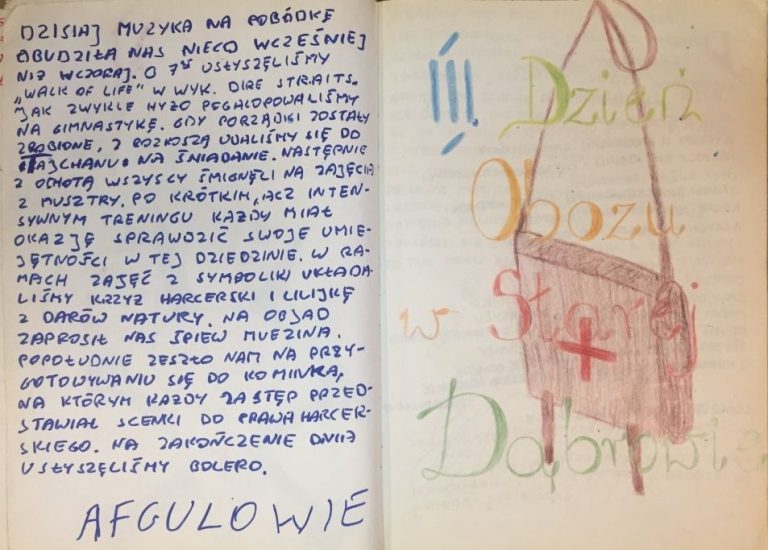 DZISIAJ MUZYKA NA POBÓDKĘ
OBUDZIŁA NAS NIECO WCZEŚNIEJ
NIŻ WCZORAJ. O 7ºº USŁYSZELIŚMY
„WALK OF LIFE" W WYK. DIRE STRAITS.
JAK ZWYKLE HYŻO POGALOPOWALIŚMY
NA GIMNASTYKĘ. GDY PORZĄDKI ZOSTAŁY
ZROBIONE, Z ROZKOSZĄ UDALIŚMY SIĘ DO
TAJCHANU NA ŚNIADANIE. NASTĘPNIE
Z OCHOTĄ WSZYSCY ŚMIGNĘLI NA ZAJĘCIA
Z MUSZTRY. PO KRÓTKIM, ACZ INTEN-
SYWNYM TRENINGU KAŻDY MIAŁ
OKAZJĘ SPRAWDZIĆ SWOJE UMIE-
JĘTNOŚCI W TEJ DZIEDZINIE. W RA-
MACH ZAJĘĆ Z SYMBOLIKI UKŁADA-
LIŚMY KRZYŻ HARCERSKI I LILIJKĘ
Z DARÓW NATURY. NA OBJAD
ZAPROSIŁ NAS ŚPIEW MUEZINA.
POPOŁUDNIE ZESZŁO NAM NA PRZY-
GOTOWYWANIU SIĘ DO KOMINKA,
NA KTÓRYM KAŻDY ZASTĘP PRZED-
STAWIAŁ SCENKI DO PRAWA HARCER-
SKIEGO. NA ZAKOŃCZENIE DNIA
USŁYSZĘLIŚMY BOLERO.
AFGULOWIE
III Dzień
Obozu
w Starej
Dąbrowie